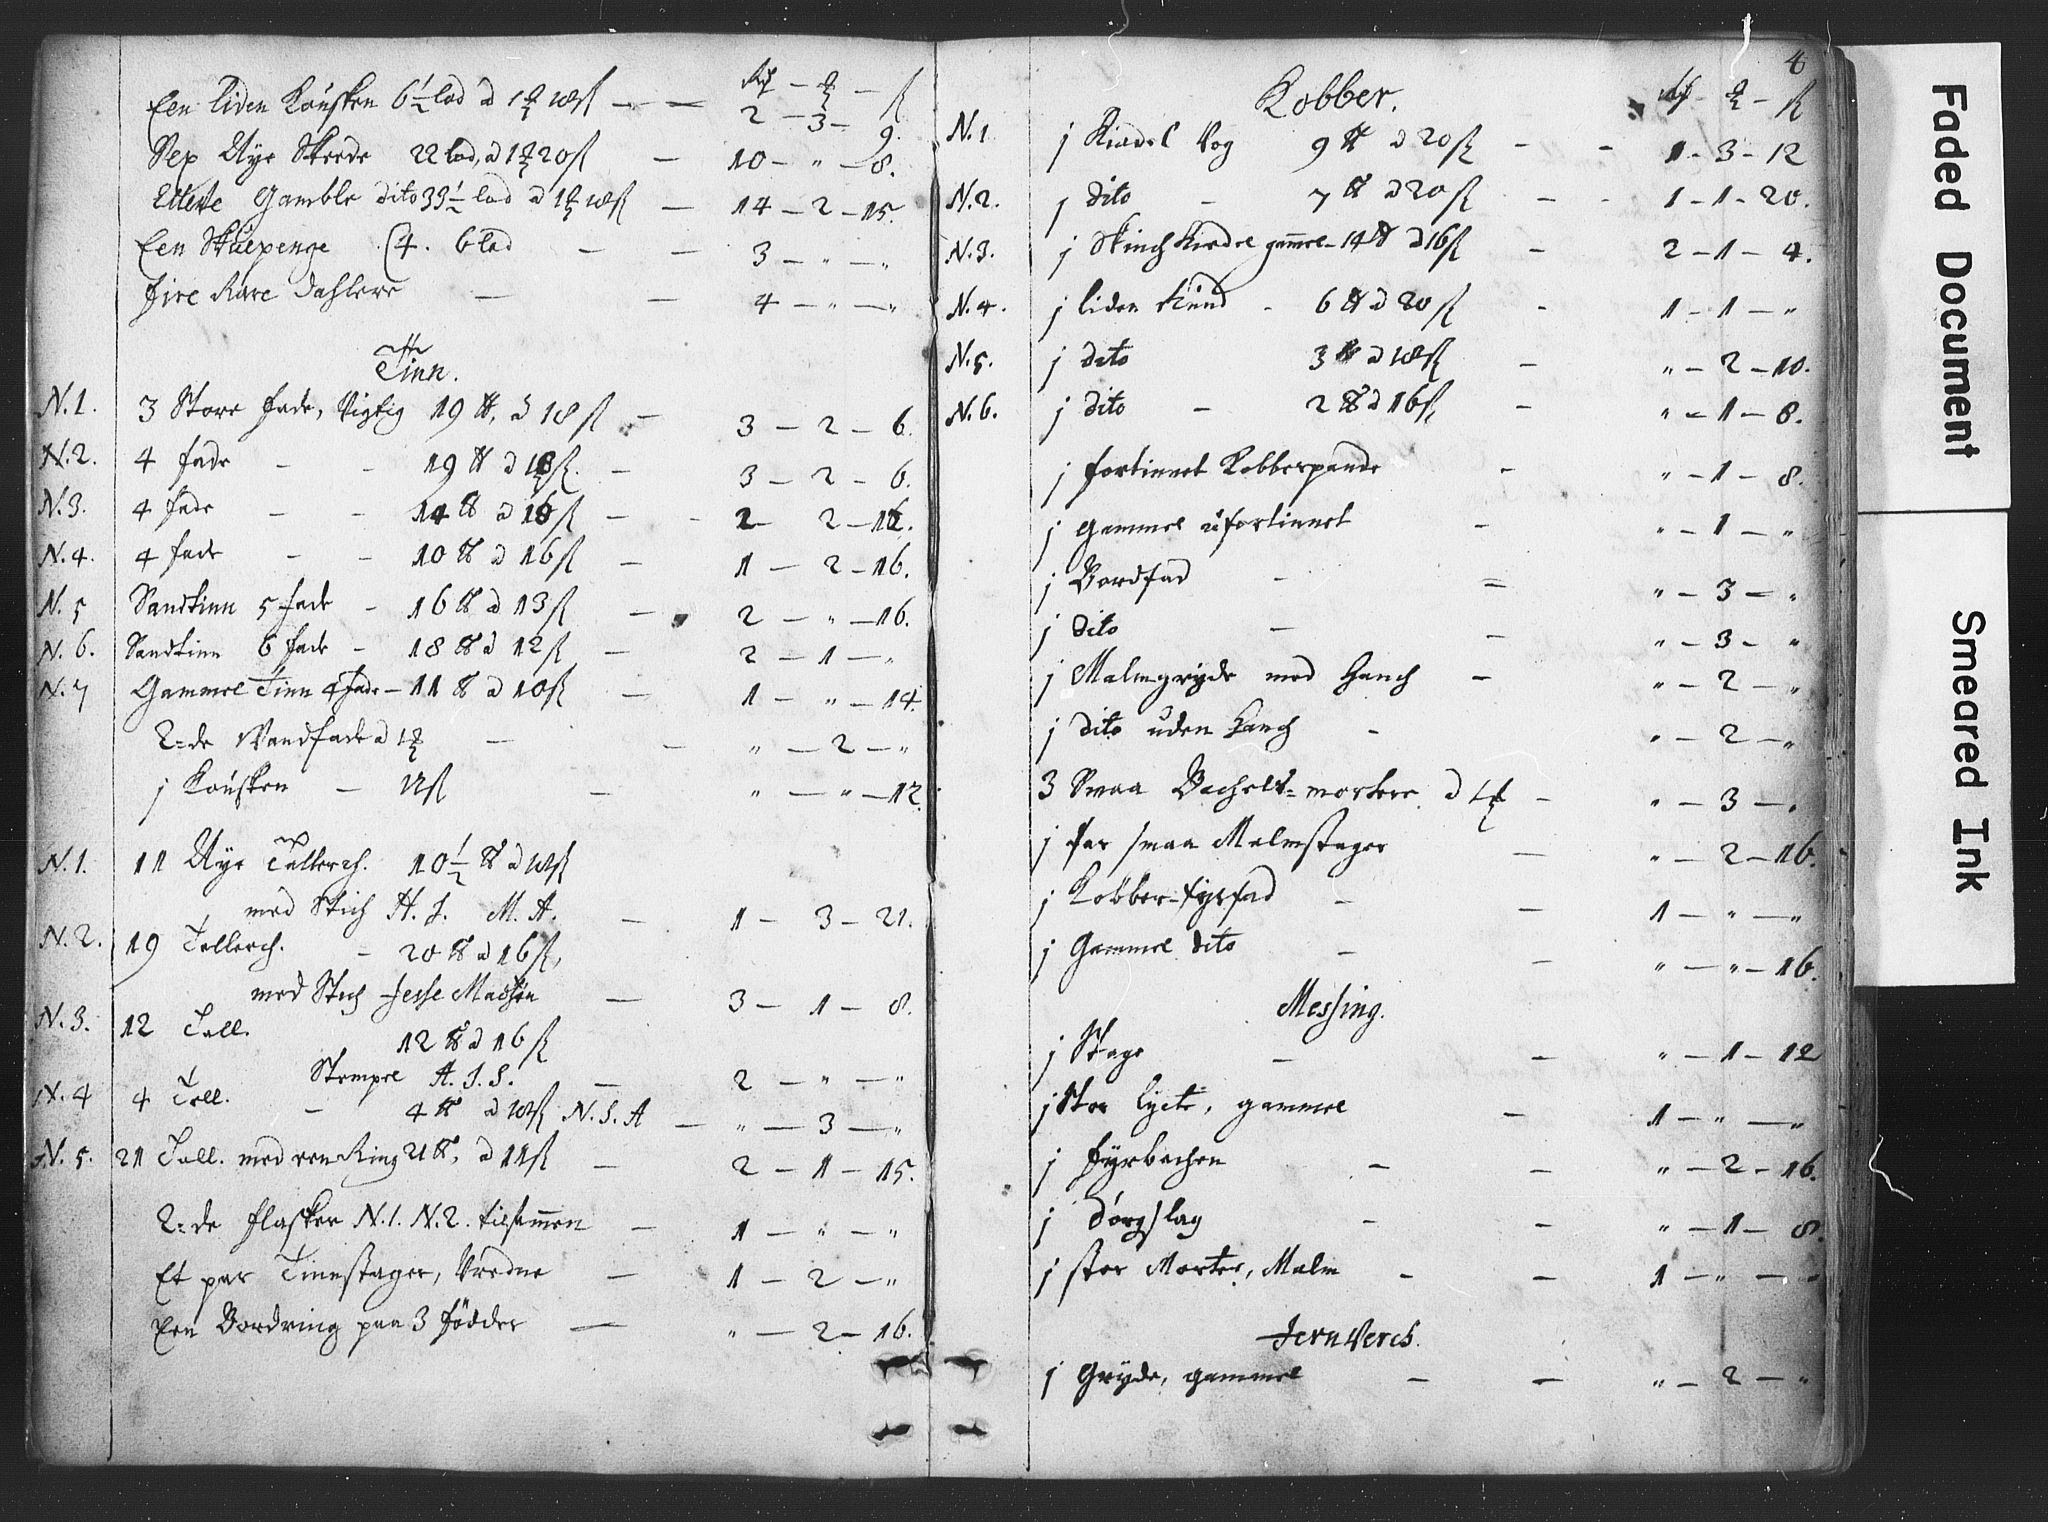 Rdr — ort — ß
Een liden Kousken 6½ lod a 1 ort 18 ß — 2 — 3 — 9.
Sex Nye Skeede 22 lod, a 1 ort 20 ß — 10 — " — 8.
Gamble dito 33½ lod a 1 ort 18 ß — 14 — 2 — 15.
Een Skuepenge 4. 6 lod — 3 — " — "
fire Rare Dahlere — 4 — " — "
Tinn.
N.1. 3 Store fade, Vigtig 19 ℔, a 18 ß — 3 — 2 — 6.
N.2. 4 fade — 19 ℔ a 18 ß. — 3 — 2 — 6.
N.3. 4 fade — 14 ℔ a 16 ß — 2 — 16.
N.4. 4 fade — 10 ℔ a 16 ß — 1 — 2 — 16.
N.5 Sandtinn 5 fade — 16 ℔ a 13 ß — 2 — " — 16.
N.6. Sandtinn 6 fade — 18 ℔ a 12 ß — 2 — 1 — "
N.7 Gammel Tinn 4 fade — 11 ℔ a 10 ß — 1 — " — 14.
2=de Vandfade a 1 ort — " — 2 — "
j Kousken — 12 ß — " — " — 12.
N.1. 11 Nye Tallerch. 10½ ℔ a 18 ß
med Stich H. I. M. A. — 1 — 3 — 21.
N.2. 19 Tallerch. — 20 ℔ a 16 ß,
med Stich Jesse Madsøn — 3 — 1 — 8.
N.3. 12 Tall. 12 ℔ a 16 ß
Stempel A. I. S. — 2 — " — "
N.4 4 Tall. — 4 ℔ a 18 ß N. S. A — " — 3 — "
N.5. 21 Tall. med een Ring 21 ℔, a 11 ß — 2 — 1 — 15.
2=de flasker N.1. N.2. tilsammen — 1 — " — "
Et par Tinnstager, Vredne — 1 — 2 — "
Een Bordring paa 3 fødder — " — 2 — 16.
4
Kobber. Rdr — ort — ß
N.1 j Kiedel Vog 9 ℔ a 20 ß — 1 — 3 — 12
N.2. j dito — 7 ℔ a 20 ß — 1 — 1 — 20.
N.3. j Kiedel gamel — 14 ℔ a 16 ß — 2 — 1 — 4.
N.4. j liden Rund — 6 ℔ a 20 ß — 1 — 1 — "
N.5. j dito 3 ℔ a 18 ß — " — 2 — 10.
N.6. j dito — 2 ℔ a 16 ß, — " — 1 — 8.
j fortinnet Kobberpande — " — 1 — 8.
j gammel ufortinnet — " — 1 — "
j Bordfad — " — 3 — "
j dito — " — 3 — "
j Malmgryde med Hanch — " — 2 — "
j dito uden Hanch — " — 2 — "
3 Smaa mortere a 1 ort — " — 3 — "
j par smaa Malmstager — " — 2 — 16.
j Kobber-fyrfad — 1 — " — "
j Gammel dito — " — " — 16.
Messing.
j Stage — " — 1 — 12
j Stor lycte, gammel — 1 — " — "
j fyrbechen — " — 2 — 16.
j Dørgslag — " — 1 — 8.
j stor Morter, Malm — 1 — " — "
Jernverch.
j Gryde, gammel — " — 2 — "
Faded Document
Smeared Ink